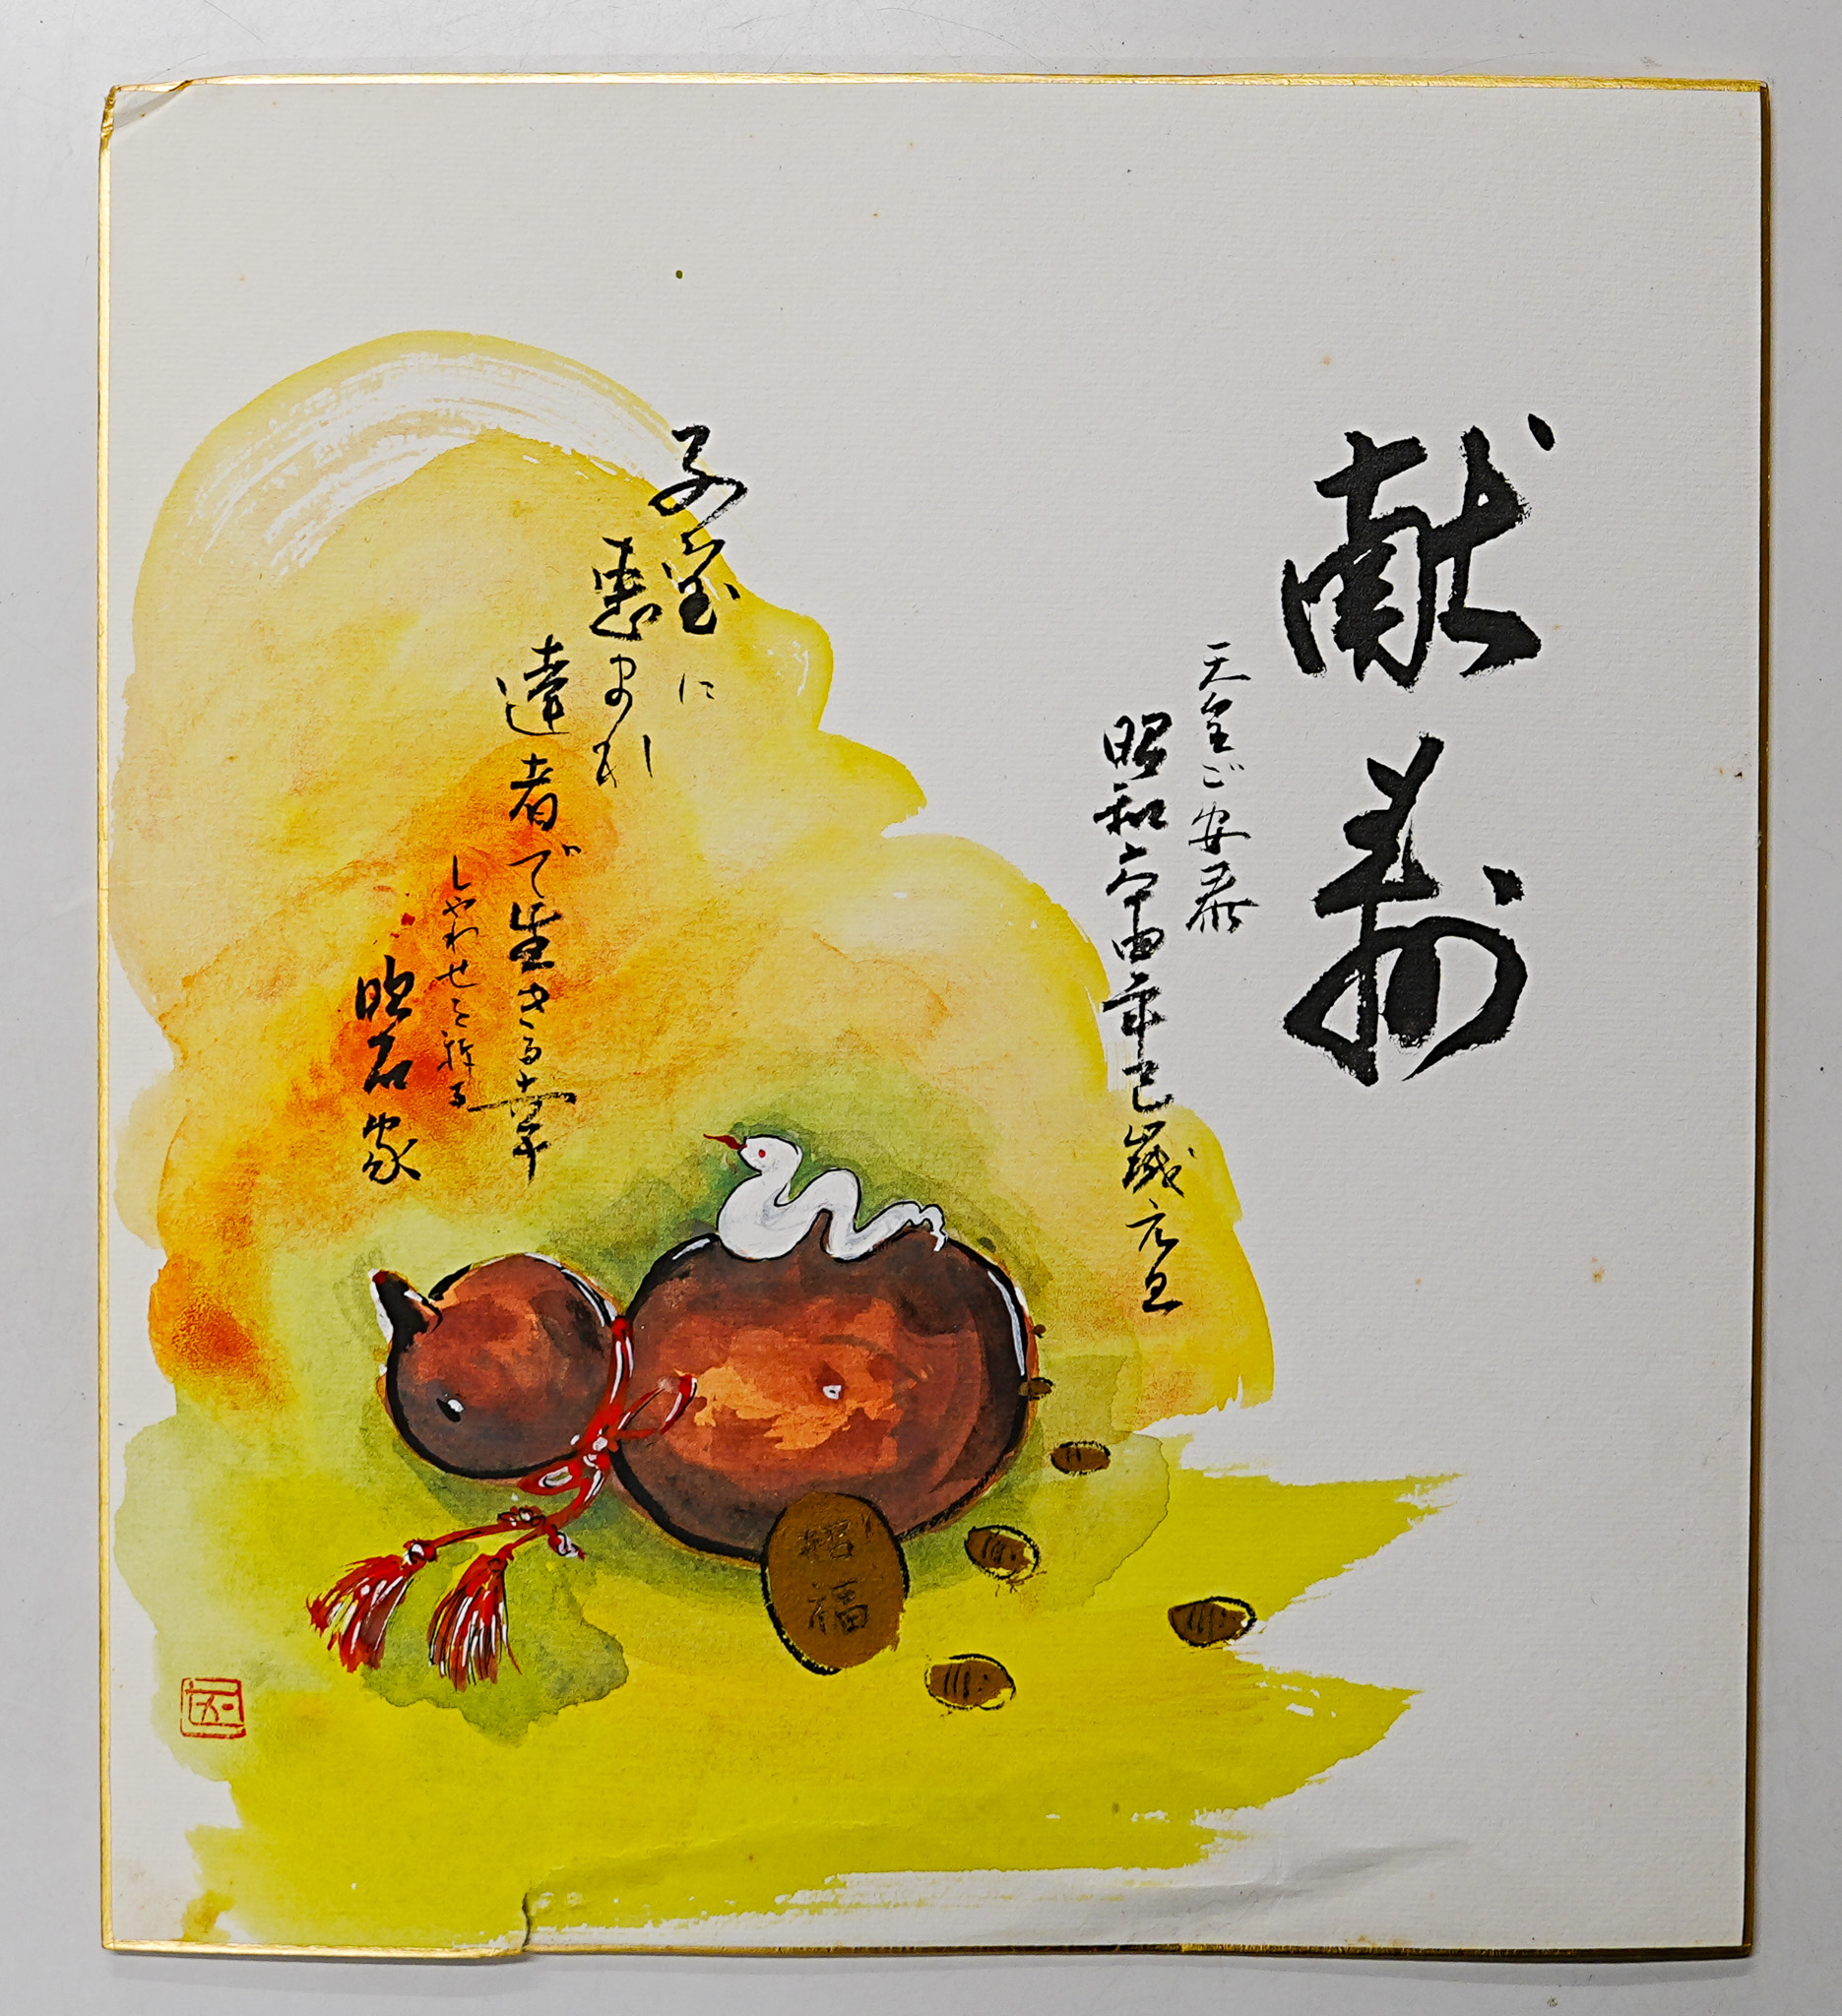 献寿
天皇ご安泰
昭和六十四年巳歳元旦
子宝に
恵まれ
達者で生きる幸
しやわせを祈る
招福